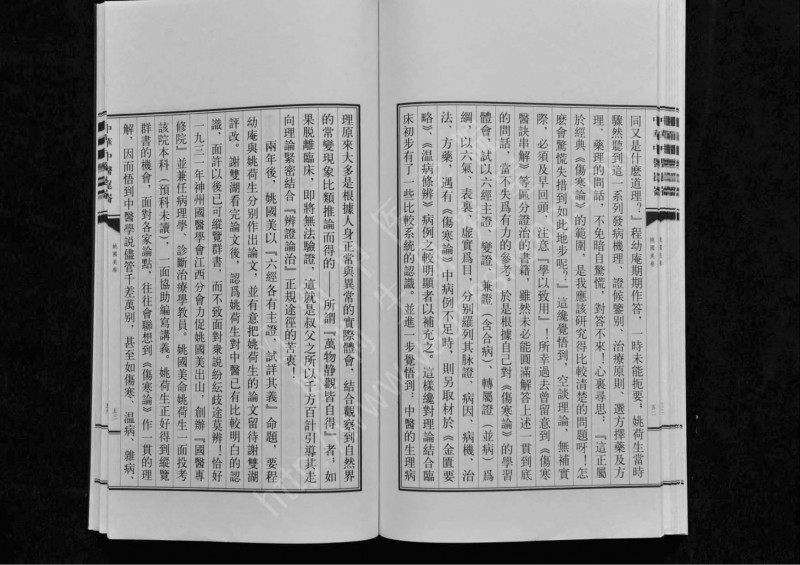 同又是什麽道理？』程幼庵期期作答，一時未能扼要。姚荷生當時
驟然聽到這一系列發病機理、證候鑒别、治療原則、選方擇藥及方
理、藥理的問話，不免暗自驚慌，對答不來！心裏尋思：『這正屬
於經典《傷寒論》的範圍，是我應該研究得比較清楚的問題呀！怎
麽會驚慌失措到如此地步呢？』這纔覺悟到，空談理論，無補實
際，必須及早回頭，注意『學以致用』！所幸過去曾留意到《傷寒
醫訣串解》等區分證治的書籍，雖然未必能圓滿解答上述一貫到底
的問話，當不失爲有力的參考。於是根據自己對《傷寒論》的學習
體會，試以六經主證、變證、兼證（含合病）、轉屬證（並病）爲
綱，以六氣、表裏、虛實爲目，分别羅列其脉證、病因、病機、治
法、方藥，遇有《傷寒論》中病例不足時，則另取材於《金匱要
略》《温病條辨》病例之較明顯者以補充之。這樣纔對理論結合臨
床初步有了一些比較系統的認識。並進一步覺悟到：中醫的生理病
理原來大多是根據人身正常與異常的實際體會，結合觀察到自然界
的常變現象比類推論而得的——所謂『萬物静觀皆自得』者。如
果脱離臨床，即將無法驗證，這就是叔父之所以千方百計引導其走
向理論緊密結合『辨證論治』正規途徑的苦衷！
兩年後，姚國美以『六經各有主證，試詳其義』命題，要程
幼庵與姚荷生分别作出論文，並有意把姚荷生的論文留待謝雙湖
評改。謝雙湖看完論文後，認爲姚荷生對中醫已有比較明白的認
識，面許以後已可縱覽群書，而不致面對衆說紛紜歧途莫辨！恰好
一九三二年神州國醫學會江西分會力促姚國美出山，創辦『國醫專
修院』並兼任病理學、診斷治療學教員。姚國美命姚荷生一面投考
該院本科（預科未讀），一面協助編寫講義。姚荷生正好得到縱覽
群書的機會，面對各家論點，往往會聯想到《傷寒論》作一貫的理
解，因而悟到中醫學説儘管千差萬别，甚至如傷寒、温病、雜病、
姚國美卷
姚國美卷